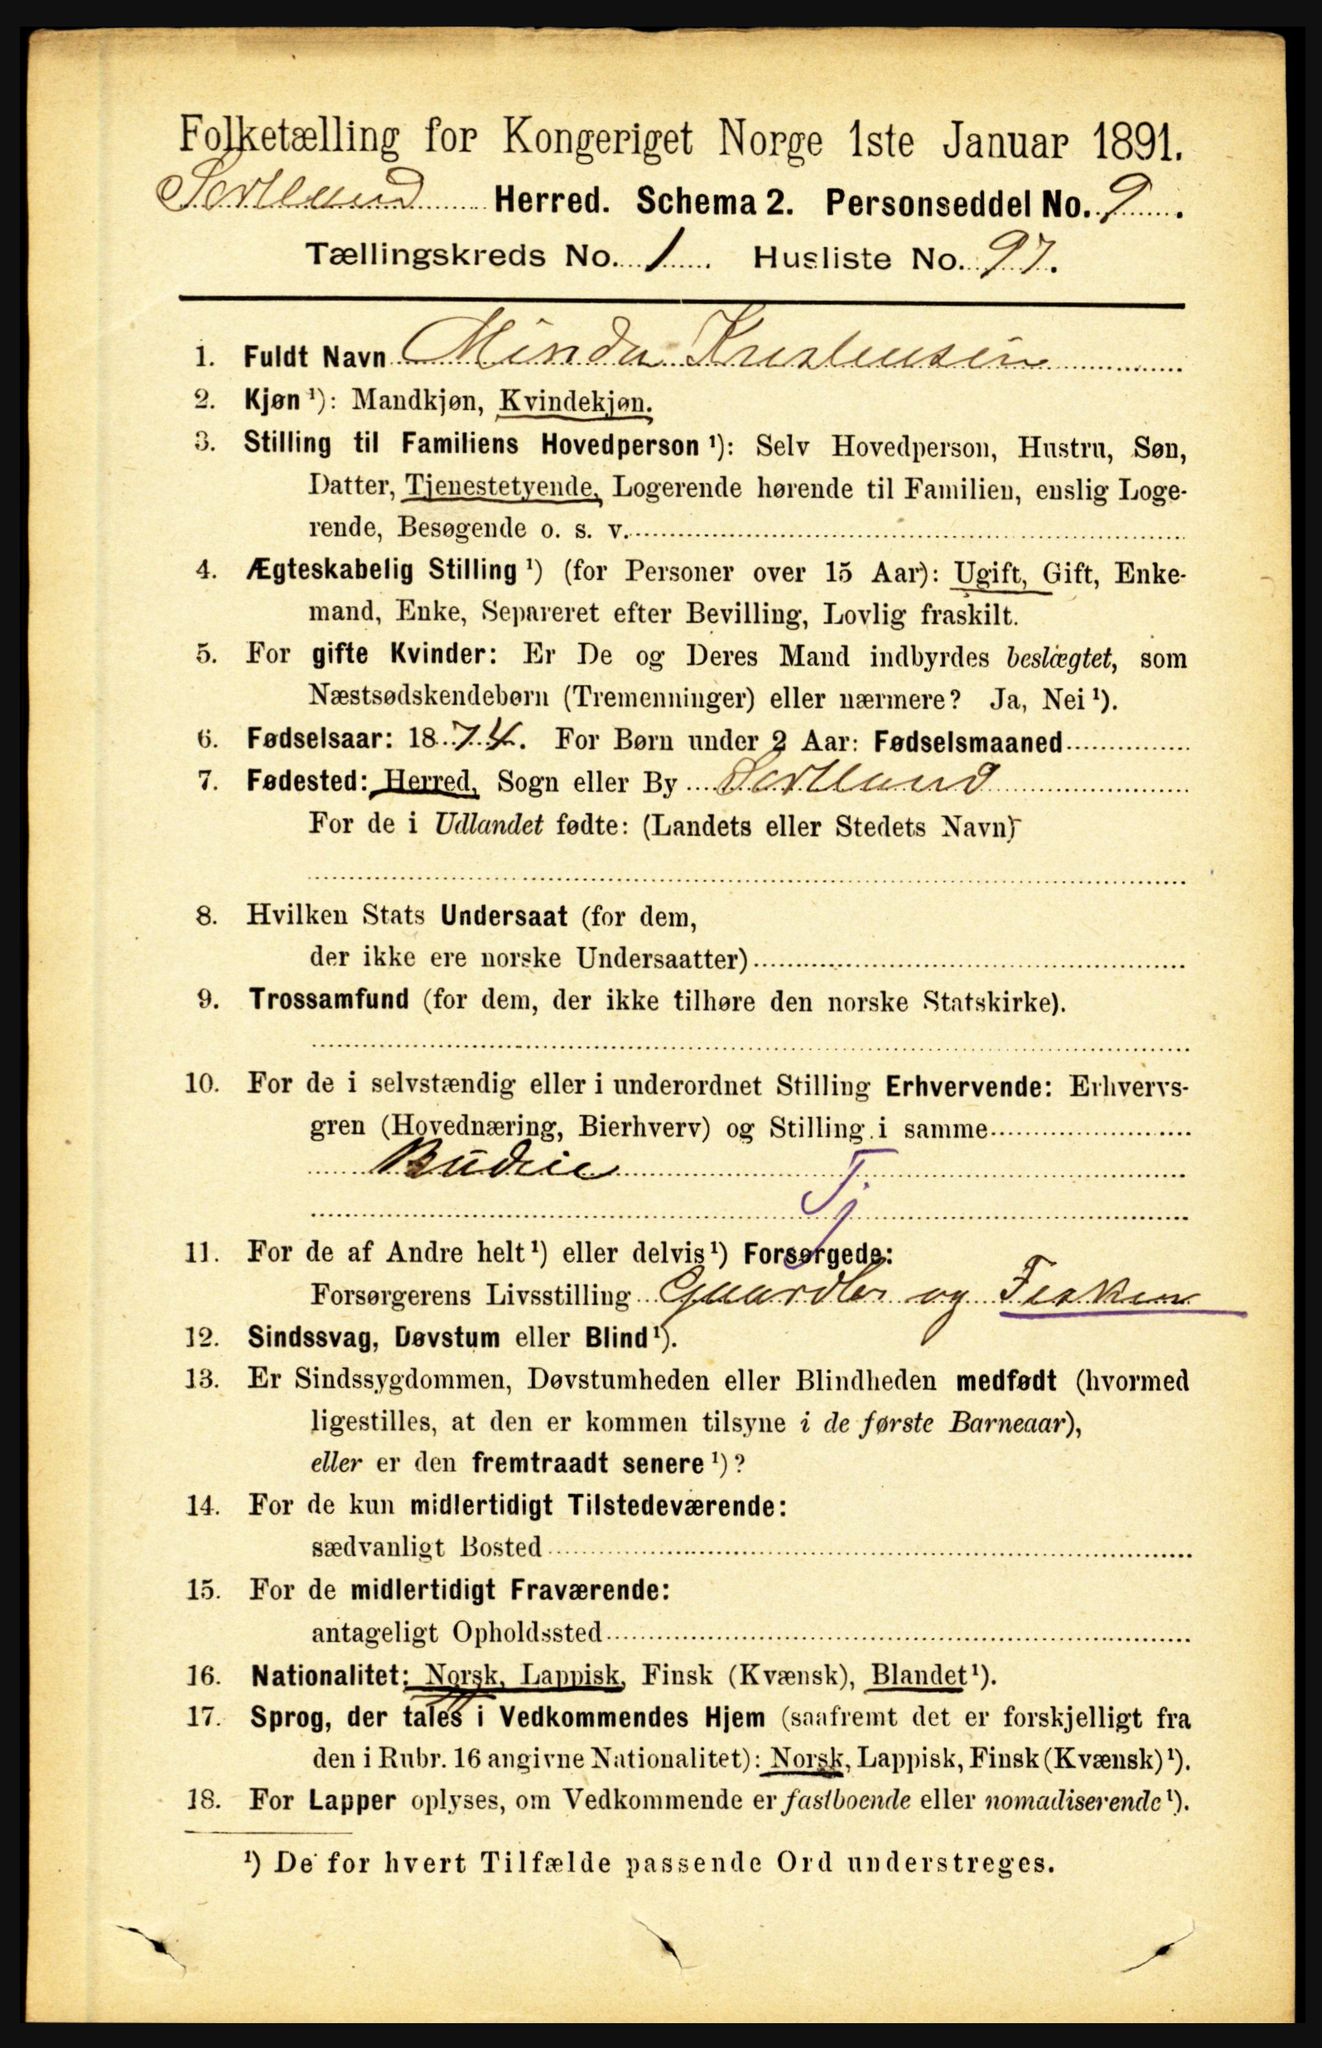 Folketælling for Kongeriget Norge 1ste Januar 1891.
Sortland Herred. Schema 2. Personseddel No. 9.
Tællingskreds No. 1. Husliste No. 97.
1. Fuldt Navn Minda Kristensen
2. Kjøn ¹): Mandkjøn, Kvindekjøn.
3. Stilling til Familiens Hovedperson ¹): Selv Hovedperson, Hustru, Søn,
Datter, Tjenestetyende, Logerende hørende til Familien, enslig Loge-
rende, Besøgende o. s. v.
4. Ægteskabelig Stilling ¹) (for Personer over 15 Aar): Ugift, Gift, Enke-
mand, Enke, Separeret efter Bevilling, Lovlig fraskilt.
5. For gifte Kvinder: Er De og Deres Mand indbyrdes beslægtet, som
Næstsødskendebørn (Tremenninger) eller nærmere? Ja, Nei ¹).
6. Fødselsaar: 1874. For Børn under 2 Aar: Fødselsmaaned
7. Fødested: Herred, Sogn eller By Sortland
For de i Udlandet fødte: (Landets eller Stedets Navn)
8. Hvilken Stats Undersaat (for dem,
der ikke ere norske Undersaatter)
9. Trossamfund (for dem, der ikke tilhøre den norske Statskirke).
10. For de i selvstændig eller i underordnet Stilling Erhvervende: Erhvervs-
gren (Hovednæring, Bierhverv) og Stilling i samme
Budeie
Tj
11. For de af Andre helt ¹) eller delvis ¹) Forsørgede:
Forsørgerens Livsstilling Gaardbr og Fisker
12. Sindssvag, Døvstum eller Blind ¹).
13. Er Sindssygdommen, Døvstumheden eller Blindheden medfødt (hvormed
ligestilles, at den er kommen tilsyne i de første Barneaar),
eller er den fremtraadt senere ¹)?
14. For de kun midlertidigt Tilstedeværende:
sædvanligt Bosted
15. For de midlertidigt Fraværende:
antageligt Opholdssted
16. Nationalitet: Norsk, Lappisk, Finsk (Kvænsk), Blandet ¹).
17. Sprog, der tales i Vedkommendes Hjem (saafremt det er forskjelligt fra
den i Rubr. 16 angivne Nationalitet): Norsk, Lappisk, Finsk (Kvænsk) ¹).
18. For Lapper oplyses, om Vedkommende er fastboende eller nomadiserende ¹).
¹) De for hvert Tilfælde passende Ord understreges.